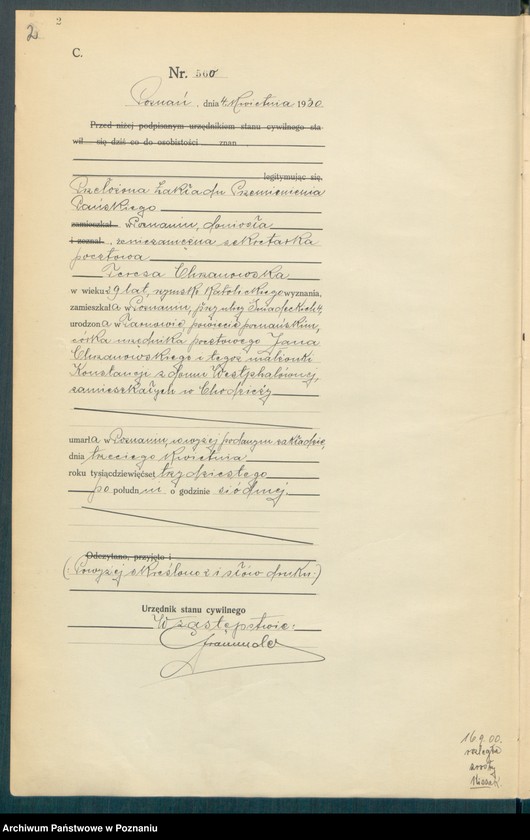 2
2
C.
Nr. 560
Poznań, dnia 4. Kwietnia 1930
Przed niżej podpisanym urzędnikiem stanu cywilnego sta
wił się dziś co do osobistości znan
legitymując się,
Przełożona Zakładu Przemienienia
Pańskiego
zamieszkał w Poznaniu, doniosła
i zeznał, że niezamężna sekretarka
pocztowa
Teresa Chrzanowska
w wieku 29 lat, rzymsk. katolickiego wyznania,
zamieszkała w Poznaniu, przy ulicy Śniadeckich
urodzona w powiecie poznańskim,
córka urzędnika pocztowego Jana
Chrzanowskiego i tegoż małżonki
Konstancji z domu
zamieszkałych w Chodzieży
umarła w Poznaniu, w wyżej podanym zakładzie,
dnia trzeciego Kwietnia
roku tysiącdziewięćset trzydziestego
po południu o godzinie siódmej.
Odczytano, przyjęto i
(Powyżej skreślono słów druku.)
Urzędnik stanu cywilnego
W zastępstwie:
169.00.
Archiwum Państwowe w Poznaniu